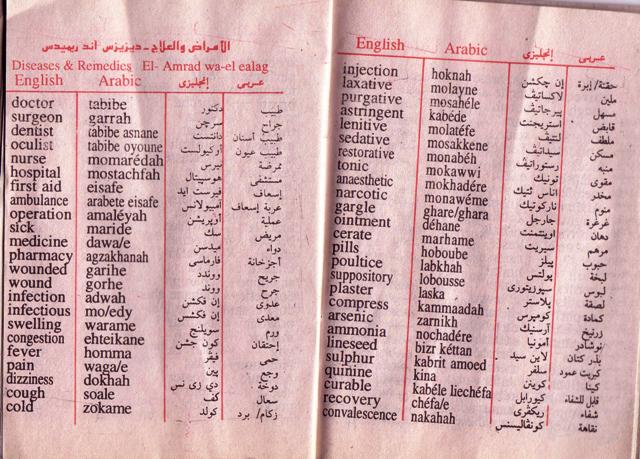 الأمراض والعلاج - ديزيزس اند ريميدس
Diseases & Remedies El- Amrad wa-el ealag
English Arabic إنجليزى عـربـى
doctor tabibe دكتور طبيب
surgeon garrah سرچن جراح
dentist tabibe asnane دانتست طبيب أسنان
oculist tabibe oyoune أوكيولست طبيب عيون
nurse momarédah نيرس ممرضة
hospital mostachfah هوسبيتال مستشفى
first aid eisafe فيرست ايد إسعاف
ambulance arabete eisafe أمبيولانس عربة إسعاف
operation amaléyah أوپريشن عملية
sick maride سك مريض
medicine dawa/e ميدسن دواء
pharmacy agzakhanah فارماسى أجزخانة
wounded garihe ووندد جريح
wound gorhe ووند جرح
infection adwah إن فكشن عدوى
infectious mo/edy إن فكشس معدى
swelling warame سويلنج ورم
congestion ehteikane كون جشن إحتقان
fever homma فيڤر حمى
pain waga/e پين وجع
dizziness dokhah دى زى نس دوخة
cough soale كف سعال
cold zokame كولد زكام/ برد
English Arabic إنجليزى عـربـى
injection hoknah إن چكشن حقنة/ إبرة
laxative molayne لاكساتيڤ ملين
purgative mosahéle پيرجاتيڤ مسهل
astringent kabéde استرينجنت قابض
lenitive molatéfe لنتيڤ ملطف
sedative mosakkene سيداتيڤ مسكن
restorative monabéh رستوراتيڤ منبه
tonic mokawwi تونيك مقوى
anaesthetic mokhadére اناس ثتيك مخدر
narcotic monawéme ناركوتيك منوم
gargle ghare/ghara جارجل غرغرة
ointment déhane اوينتمنت دهان
cerate marhame سيريت مرهم
pills hoboube پيلز حبوب
poultice labkhah پولتس لبخة
suppository lobousse سپوزيتورى لبوس
plaster laska پلاستر لصقة
compress kammaadah كومپرس كمادة
arsenic zarnikh آرسنيك زرنيخ
ammonia nochadére أمونيا نوشادر
lineseed bizr kéttan لاين سيد بذر كتان
sulphur kabrit amoed سلفر كبريت عمود
quinine kina كوينن كينا
curable kabéle liechéfa كيورابل قابل للشفاء
recovery chéfa/e ريكڤرى شفاء
convalescence nakahah كونڤاليسنس نقاهة